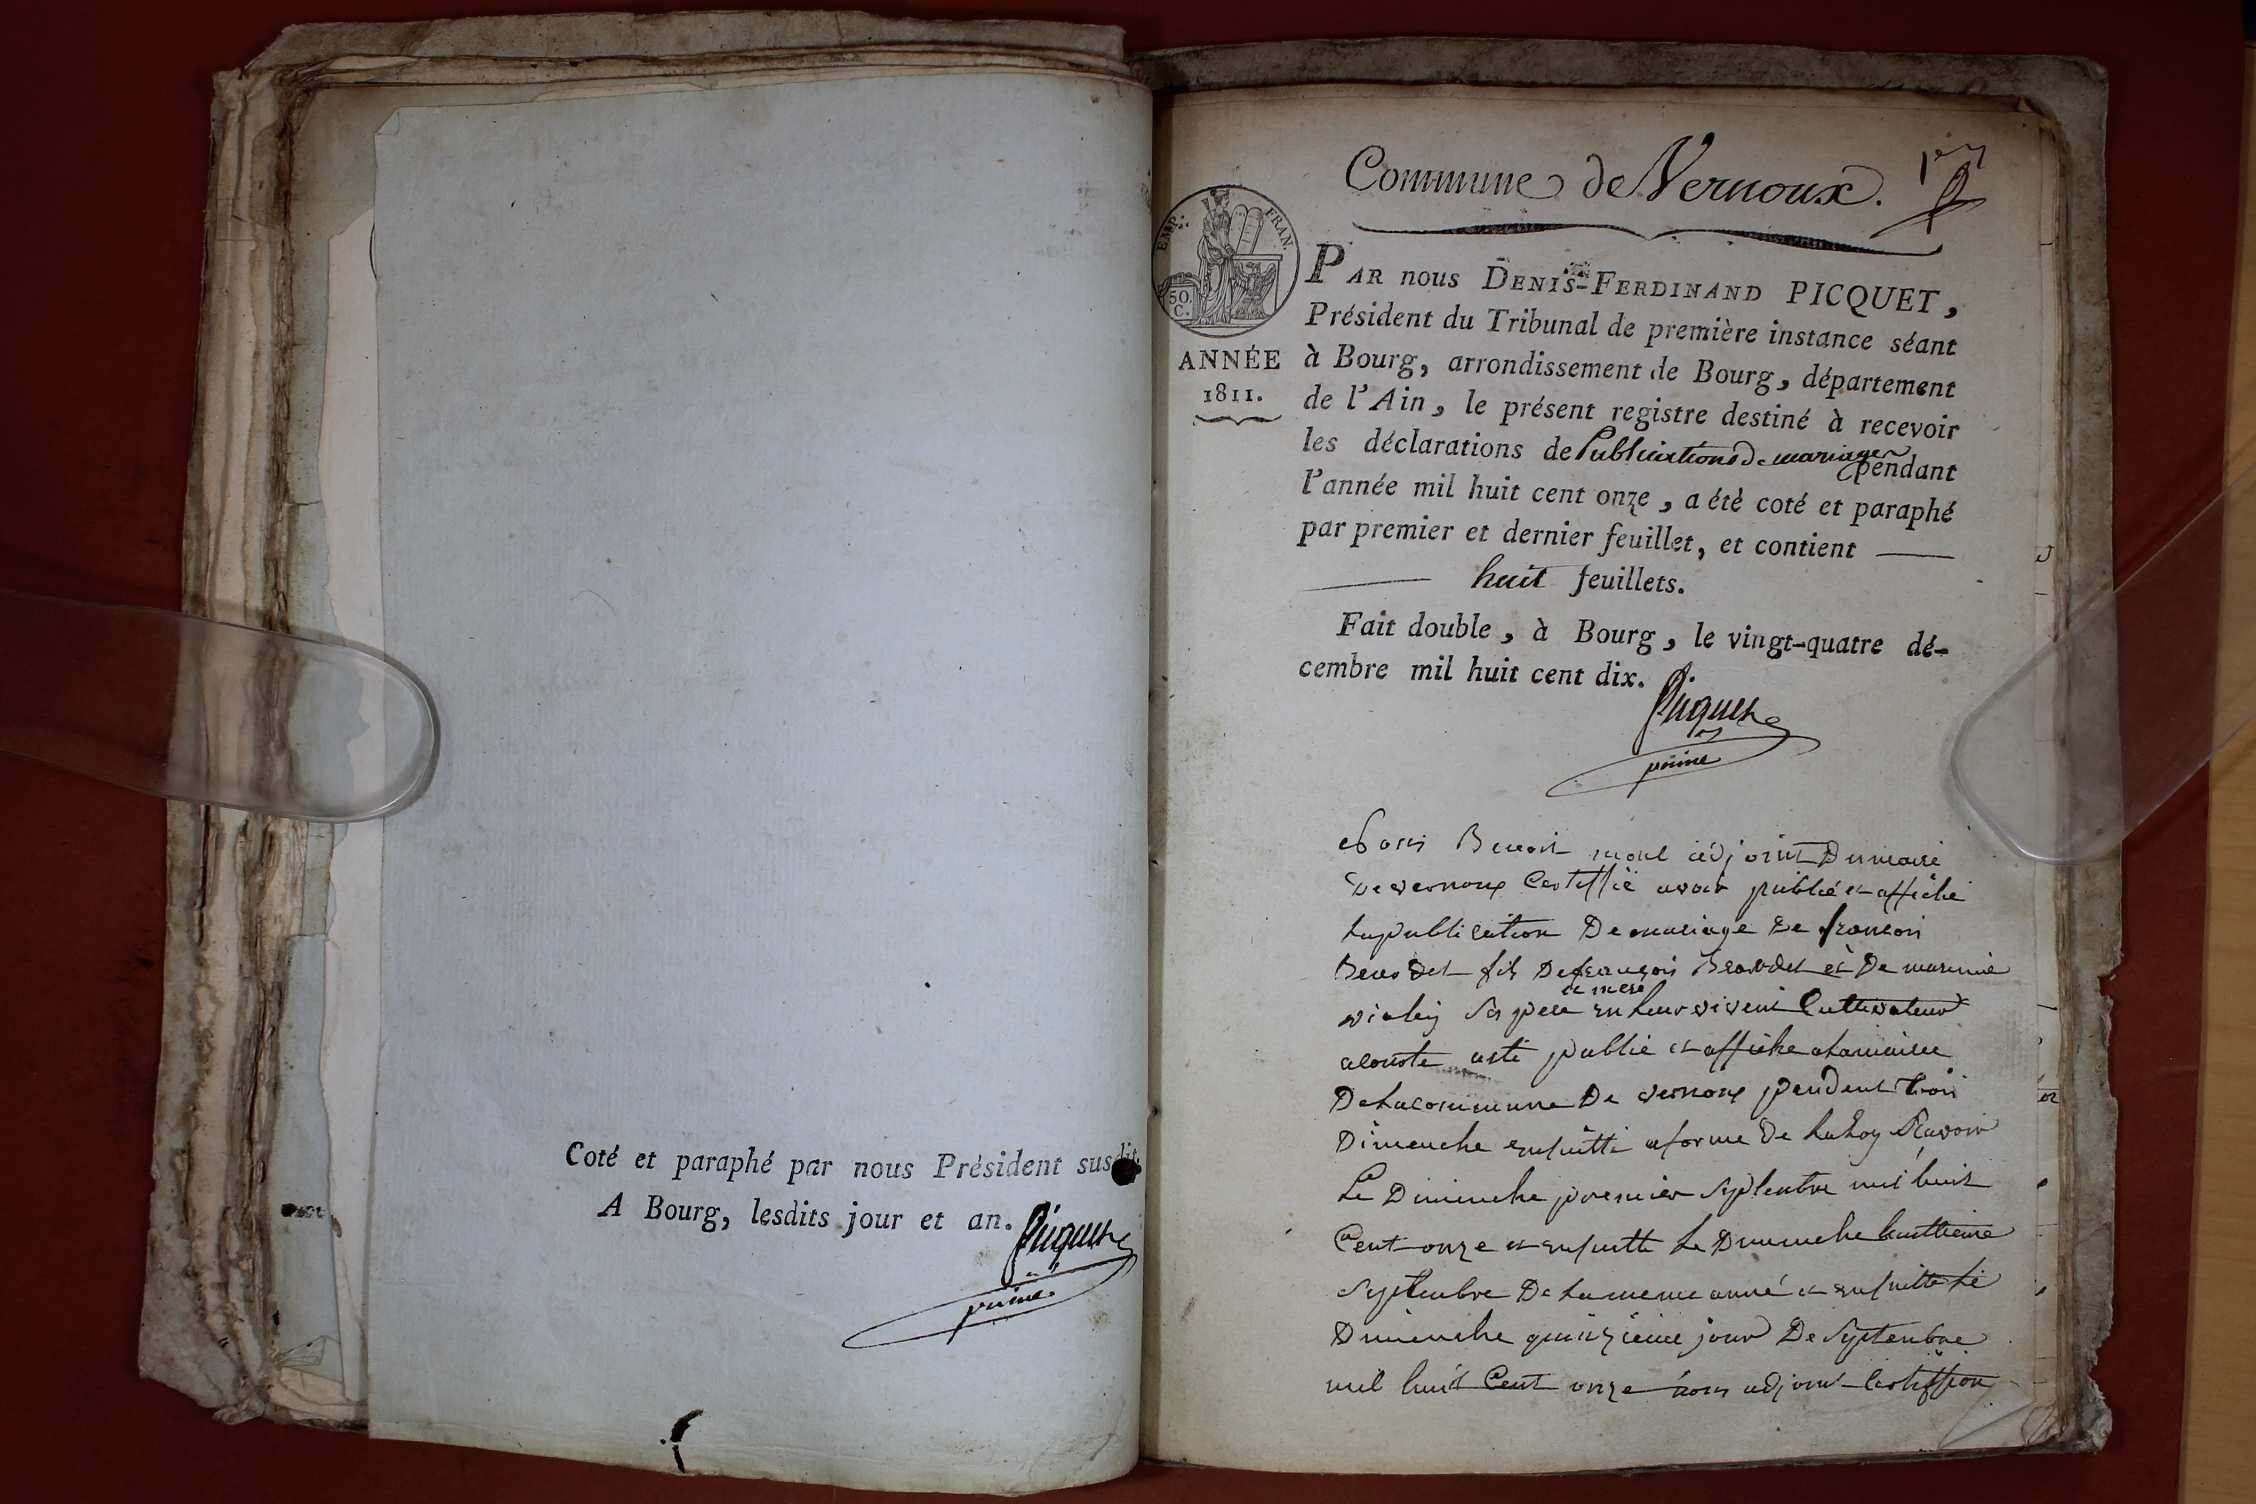 Coté et paraphé par nous Président susdit.
A Bourg, lesdits jour et an.
Picquet
1er
Commune de Vernoux.
EMP: FRAN.
50. C.
ANNÉE
1811.
PAR nous DENIS-FERDINAND PICQUET,
Président du Tribunal de première instance séant
à Bourg, arrondissement de Bourg, département
de l'Ain, le présent registre destiné à recevoir
les déclarations de Publications de mariages pendant
l'année mil huit cent onze, a été coté et paraphé
par premier et dernier feuillet, et contient
huit feuillets.
Fait double, à Bourg, le vingt-quatre dé-
cembre mil huit cent dix.
Picquet
Nous Benoit morel adjoint Dumaire
De vernoux Certiffie avoir publié et affiché
La publication De mariage De francois
fils De françois et De
ses pere et mere en leur vivent Cultivateur
a été publié et affiché a la mairie
De La commune De vernoux pendent troi
Dimenche ensuitte a forme De La Loy Scavoir
Le Dimenche premier Septenbre mil huit
Cent onze et ensuitte Le Dimenche huittieme
Septenbre De La meme anné et ensuitte Le
Dimenche quinzieme jour De Septenbre
mil huit Cent onze nous adjoint Certiffion